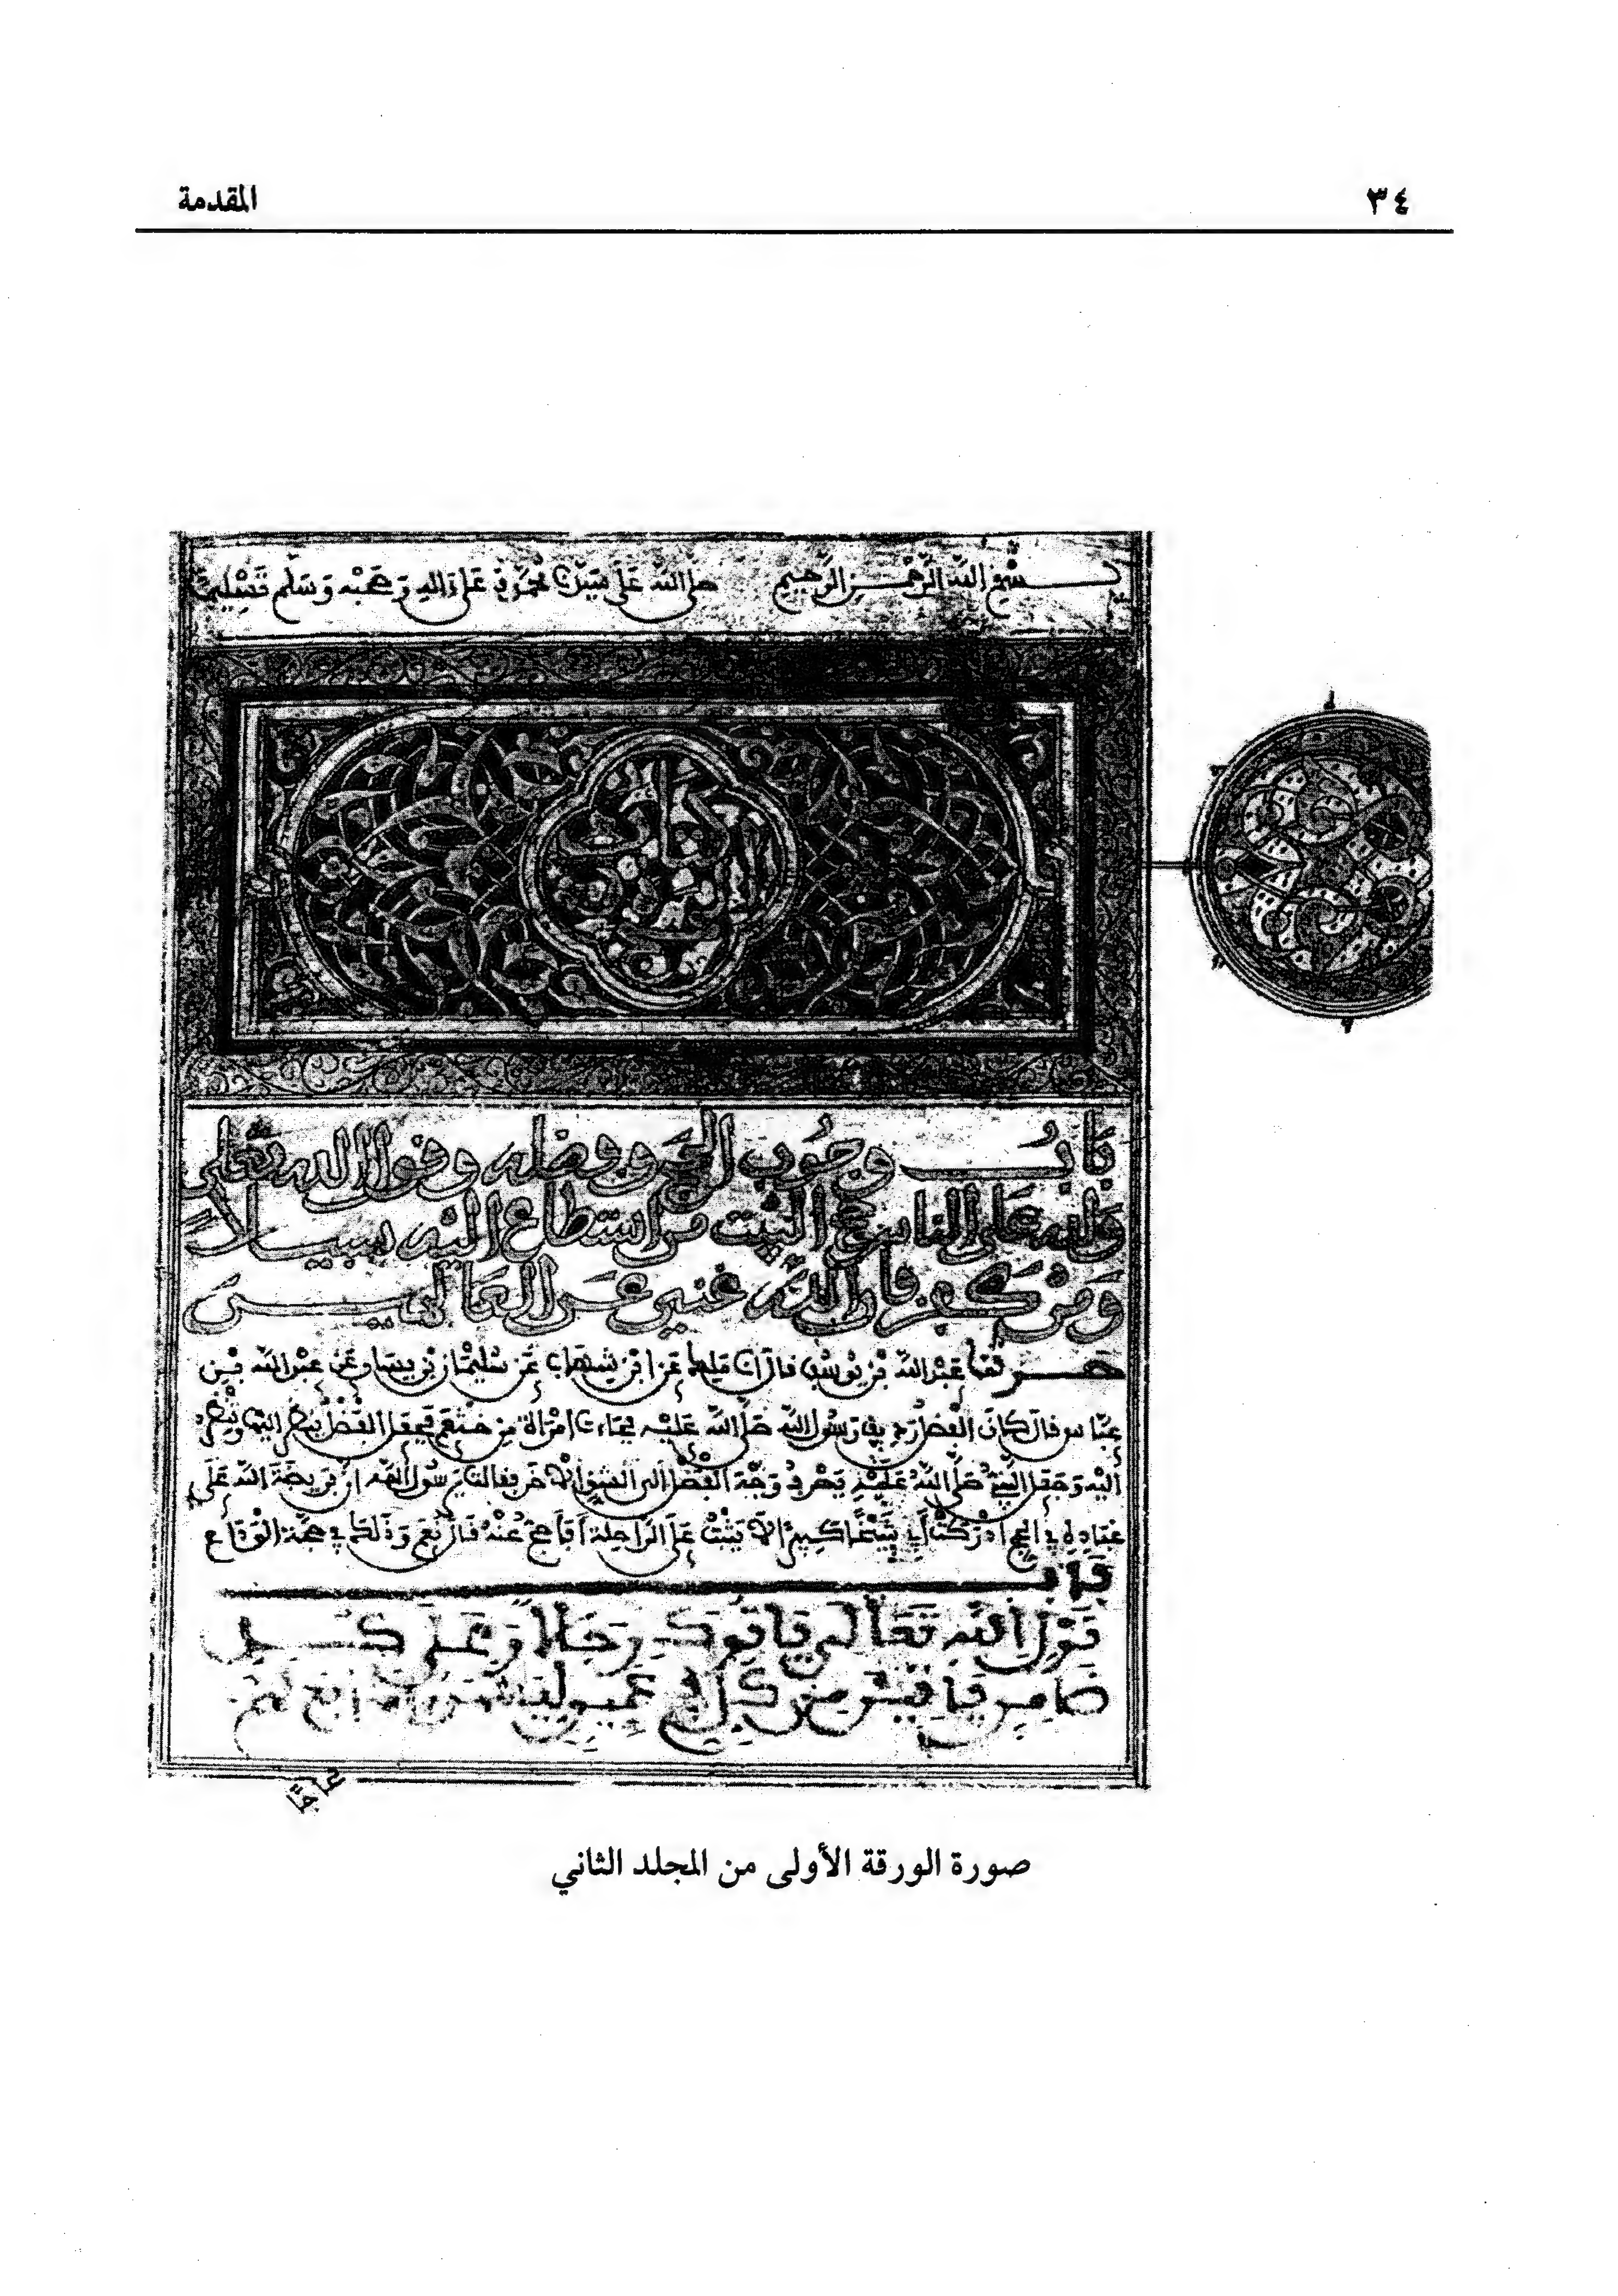 ٣٤
المقدمة
بسم الله الرحمن الرحيم صلى الله على سيدنا محمد وعلى ءاله وصحبه وسلم تسليما
بَابُ وجُوبِ الحَجِّ وفضله وقول الله تعلى
ولله على الناس حج البيت من استطاع إليه سبيلا
ومن كفر فإن الله غني عن العالمين
حدثنا عبد الله بن يوسف قال أنا ملك عن ابن شهاب عن سليمان بن يسار عن عبد الله بن
عباس قال كان الفضل رديف رسول الله صلى الله عليه فجاءت امرأة من خثعم فجعل الفضل ينظر إليها وتنظر
إليه وجعل النبي صلى الله عليه يصرف وجه الفضل إلى الشق الآخر فقالت يرسول الله إن فريضة الله على
عباده في الحج أدركت أبي شيخا كبيرا لا يثبت على الراحلة أفأحج عنه قال نعم وذلك في حجة الوداع
باب
قول الله تعالى يأتوك رجالا وعلى كل
ضامر يأتين من كل فج عميق
صورة الورقة الأولى من المجلد الثاني